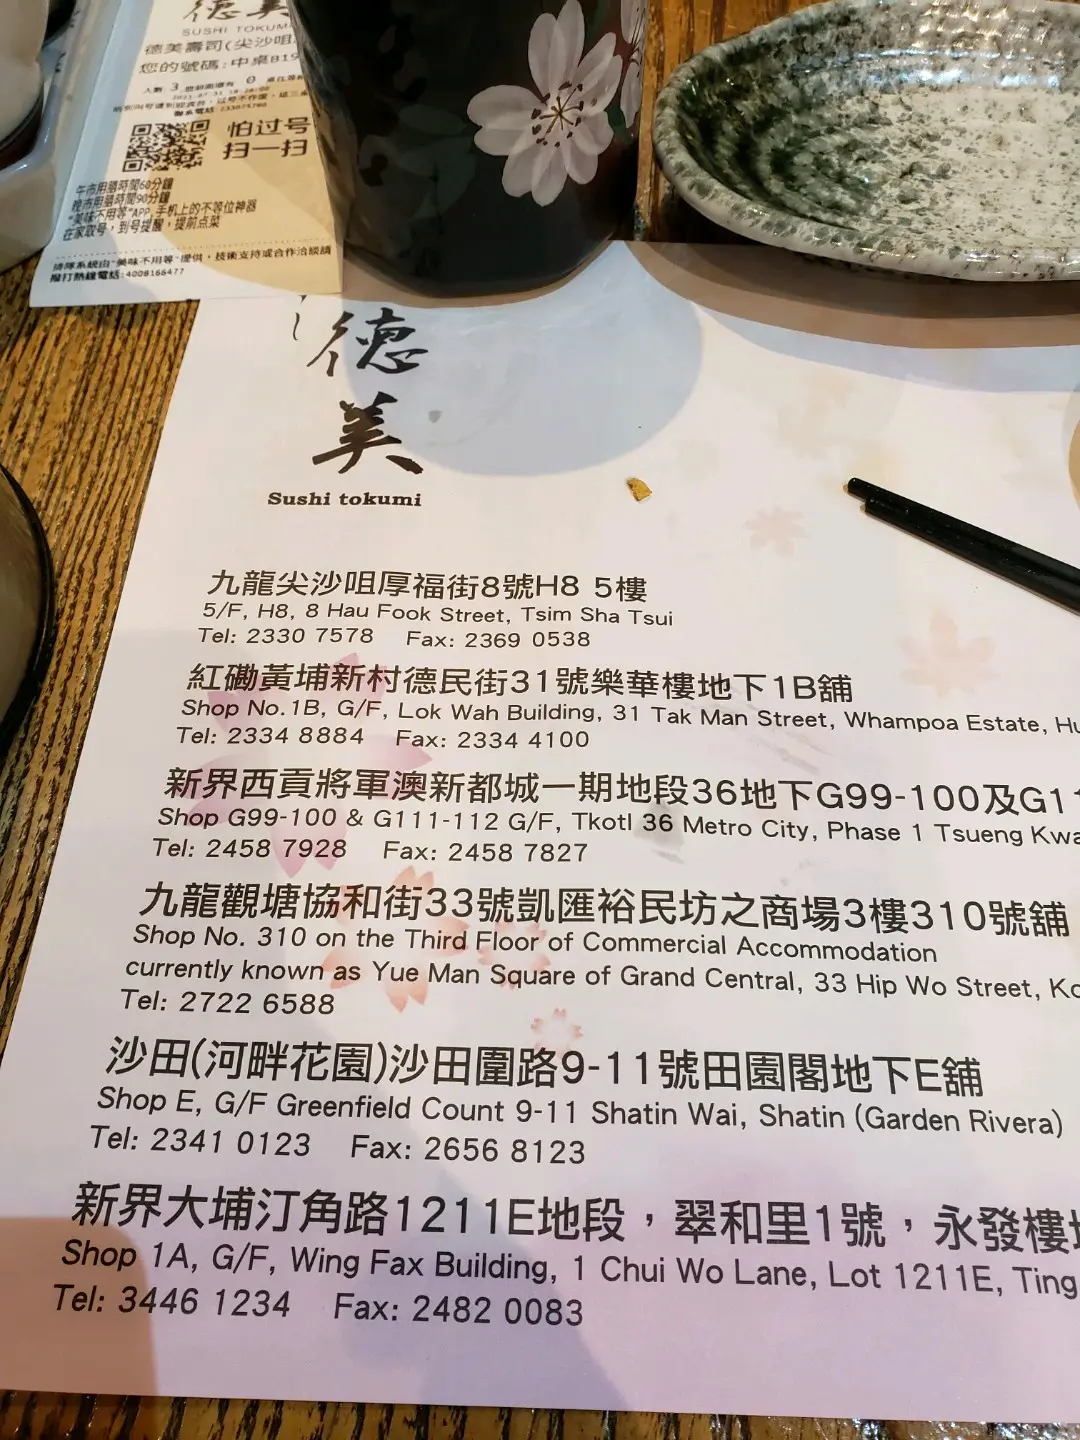 德美
SUSHI TOKUM
德美壽司(尖沙咀
您的號碼:中桌B19
人數 3
怕过号
扫一扫
午市用膳時間60分鐘
晚市用膳時間90分鐘
"美味不用等"APP,手机上的不等位神器
在家取号,到号提醒,提前点菜
排隊系統由"美味不用等"提供,技術支持或合作洽談請
撥打熱線電話:4008166477
德
美
Sushi tokumi
九龍尖沙咀厚福街8號H8 5樓
5/F, H8, 8 Hau Fook Street, Tsim Sha Tsui
Tel: 2330 7578 Fax: 2369 0538
紅磡黃埔新村德民街31號樂華樓地下1B舖
Shop No.1B, G/F, Lok Wah Building, 31 Tak Man Street, Whampoa Estate, Hu
Tel: 2334 8884 Fax: 2334 4100
新界西貢將軍澳新都城一期地段36地下G99-100及G11
Shop G99-100 & G111-112 G/F, Tkotl 36 Metro City, Phase 1 Tsueng Kwa
Tel: 2458 7928 Fax: 2458 7827
九龍觀塘協和街33號凱匯裕民坊之商場3樓310號舖
Shop No. 310 on the Third Floor of Commercial Accommodation
currently known as Yue Man Square of Grand Central, 33 Hip Wo Street, Ko
Tel: 2722 6588
沙田(河畔花園)沙田圍路9-11號田園閣地下E舖
Shop E, G/F Greenfield Count 9-11 Shatin Wai, Shatin (Garden Rivera)
Tel: 2341 0123 Fax: 2656 8123
新界大埔汀角路1211E地段，翠和里1號，永發樓地
Shop 1A, G/F, Wing Fax Building, 1 Chui Wo Lane, Lot 1211E, Ting
Tel: 3446 1234 Fax: 2482 0083